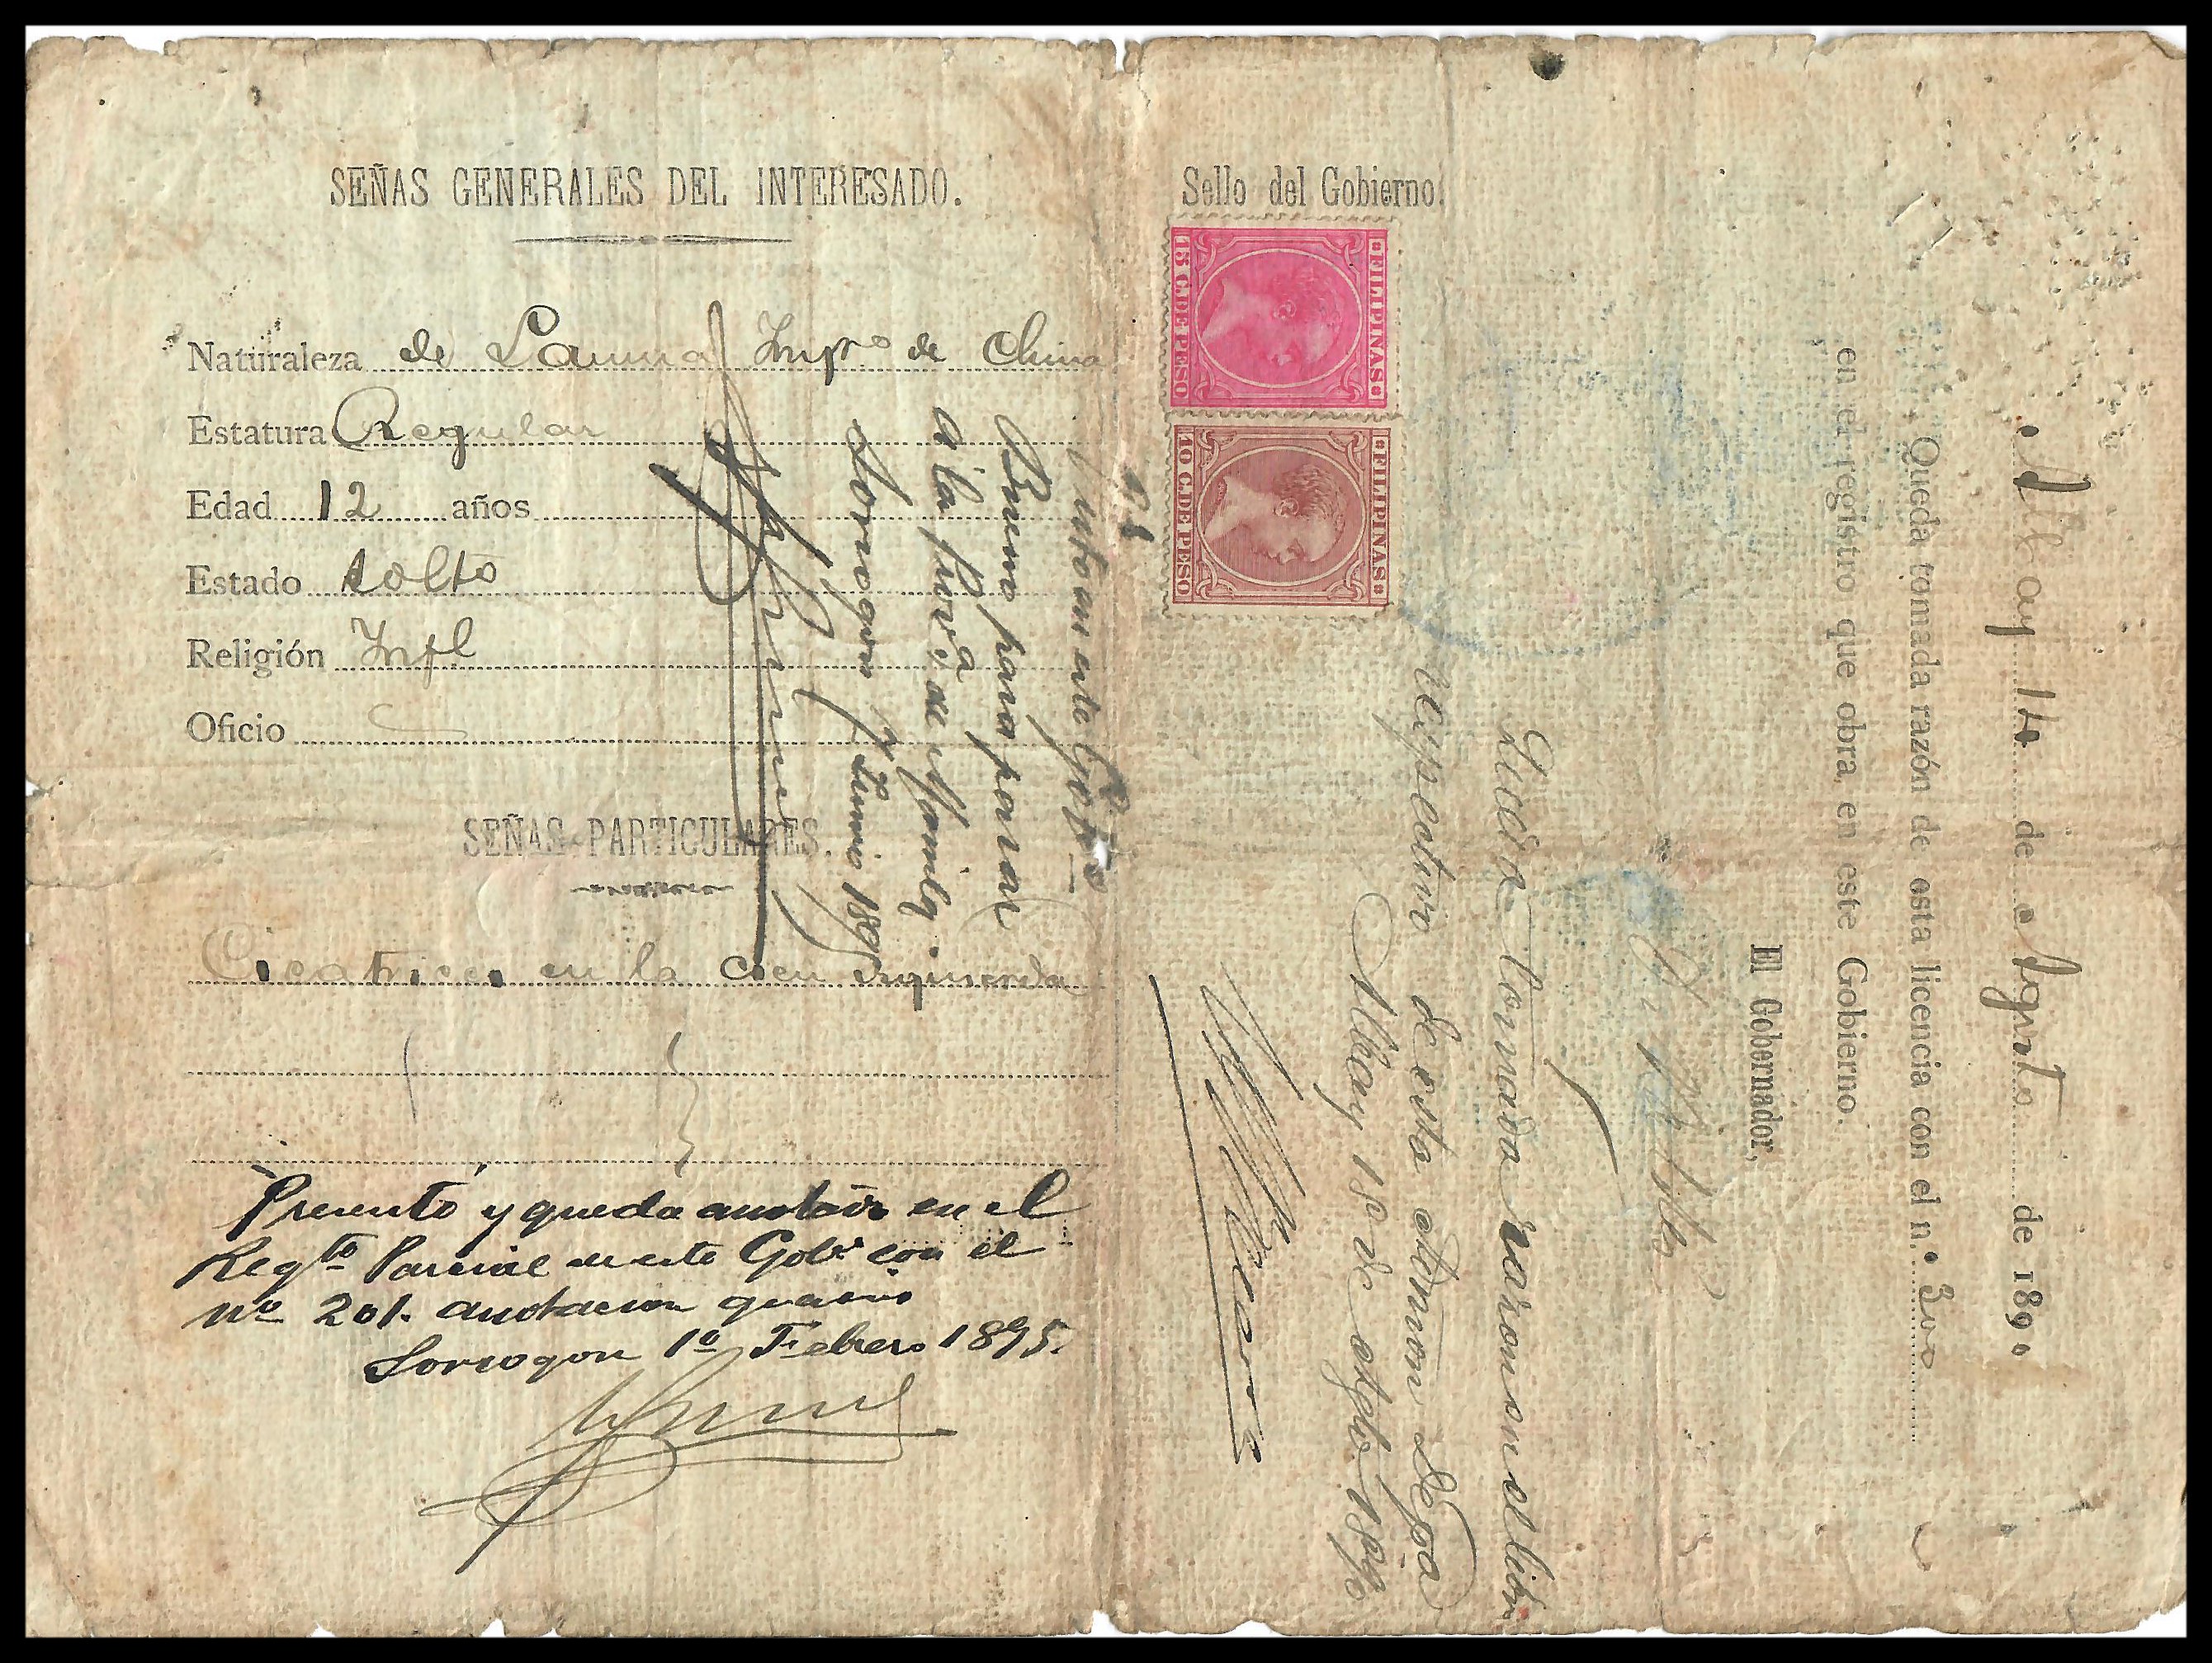 SEÑAS GENERALES DEL INTERESADO.
Naturaleza de Imp.º de China
Estatura Regular
Edad 12 años
Estado Solto
Religión Infl
Oficio
SEÑAS PARTICULARES.
Cicatrices en la cien izquierda
Presentó y queda anotado en el
Regtº Parcial de este Gobº con el
nº 201. anotacion
Sorsogon 1º Febrero 1895.
este Gobº
Bueno para pasar
a la prov.ª de Manila
Sorsogon 1895
Sello del Gobierno.
FILIPINAS
15 C. DE PESO
FILIPINAS
10 C. DE PESO
Albay 14 de Agosto de 1890
Queda tomada razón de esta licencia con el n.º 300
en el registro que obra en este Gobierno.
El Gobernador,
Queda tomada razon en el libro
respectivo de esta
Albay 18 de Agto 1890